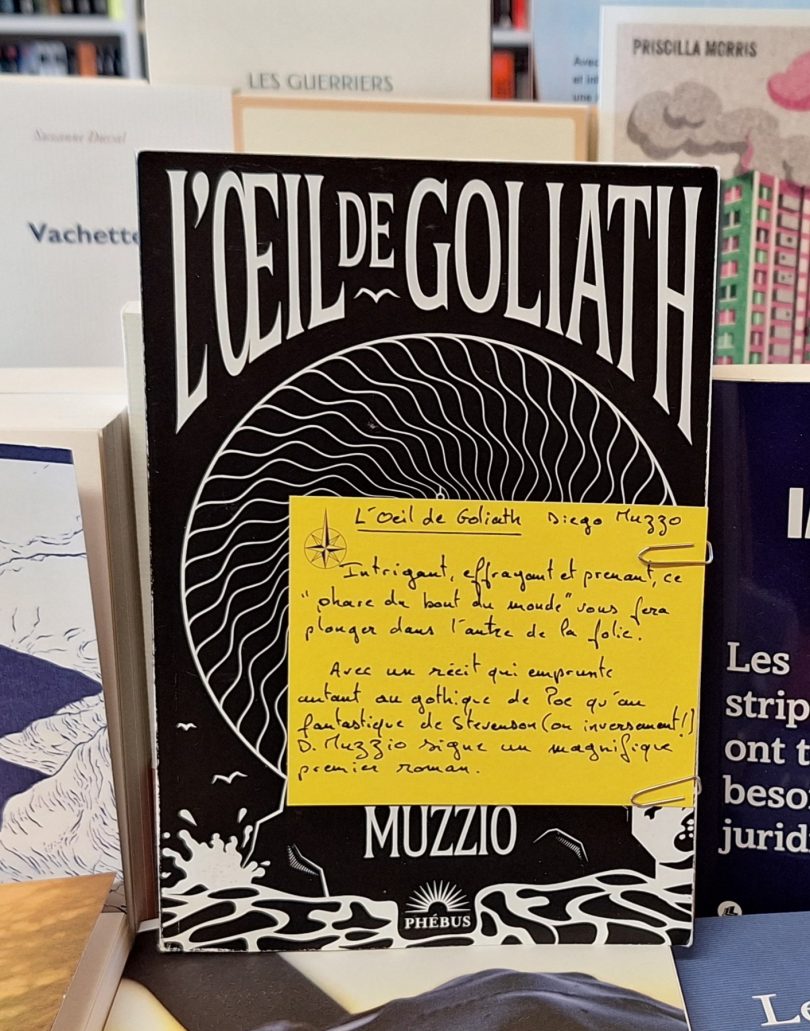 LES GUERRIERS
PRISCILLA MORRIS
Avec
et in
une
Susanne Duval
Vachette
L'ŒIL DE GOLIATH
L'Oeil de Goliath Diego Muzzo
Intrigant, effrayant et prenant, ce
"phare du bout du monde" vous fera
plonger dans l'antre de la folie.
Avec un récit qui emprunte
autant au gothique de Poe qu'au
fantastique de Stevenson (ou inversement!)
D. Muzzio signe un magnifique
premier roman.
MUZZIO
PHÉBUS
Les
strip
ont t
beso
juridi
Le